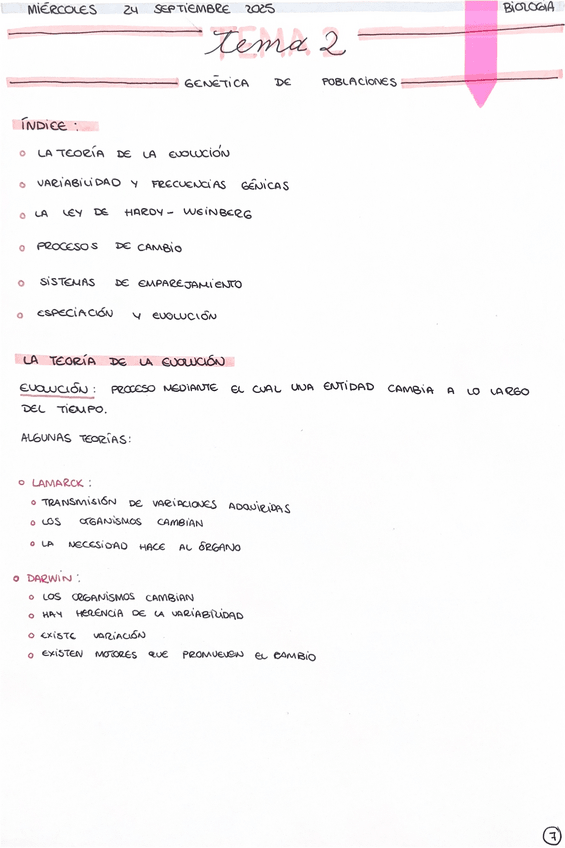 MIÉRCOLES 24 SEPTIEMBRE 2025 BIOLOGIA
TEMA 2
tema 2
GENÉTICA DE POBLACIONES
ÍNDICE:
LA TEORÍA DE LA EVOLUCIÓN
VARIABILIDAD Y FRECUENCIAS GÉNICAS
LA LEY DE HARDY - WEINBERG
PROCESOS DE CAMBIO
SISTEMAS DE EMPAREJAMIENTO
ESPECIACIÓN Y EVOLUCIÓN
LA TEORÍA DE LA EVOLUCIÓN
EVOLUCIÓN: PROCESO MEDIANTE EL CUAL UNA ENTIDAD CAMBIA A LO LARGO
DEL TIEMPO.
ALGUNAS TEORÍAS:
LAMARCK:
TRANSMISIÓN DE VARIACIONES ADQUIRIDAS
LOS ORGANISMOS CAMBIAN
LA NECESIDAD HACE AL ÓRGANO
DARWIN:
LOS ORGANISMOS CAMBIAN
HAY HERENCIA DE LA VARIABILIDAD
EXISTE VARIACIÓN
EXISTEN MOTORES QUE PROMUEVEN EL CAMBIO
7